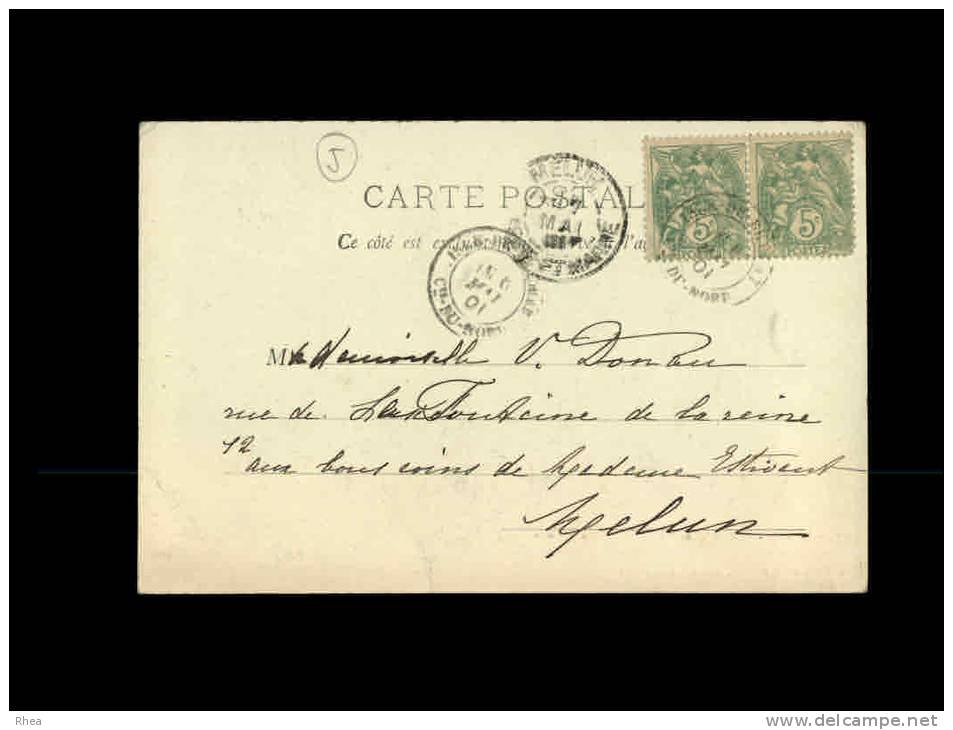 5
CARTE POSTAL
Ce côté est
MELUN
MAI
ET-MARNE
MAI
01
CH-DU-NORD
5c 5c
POSTES
01
DU-NORD
Mademoiselle V. Dondeu
rue de La Fontaine de la reine
12
aux bons soins de Madame Estivent
Melun
Rhea
delcampe.net